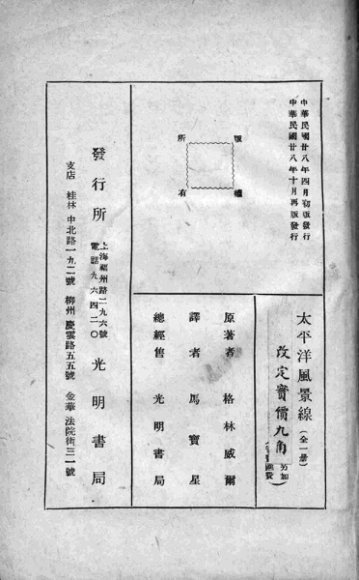 中華民國廿八年四月初版發行
中華民國廿八年十月再版發行
版權
所有
太平洋風景線（全一册）
改定實價九角
另加
原著者 格林威爾
譯者 馬寶星
總經售 光明書局
發行所 上海福州路二九六號 光明書局
電話九六四二〇
支店 桂林 中北路一九二號 柳州 慶雲路五五號 金華 法院街三一號